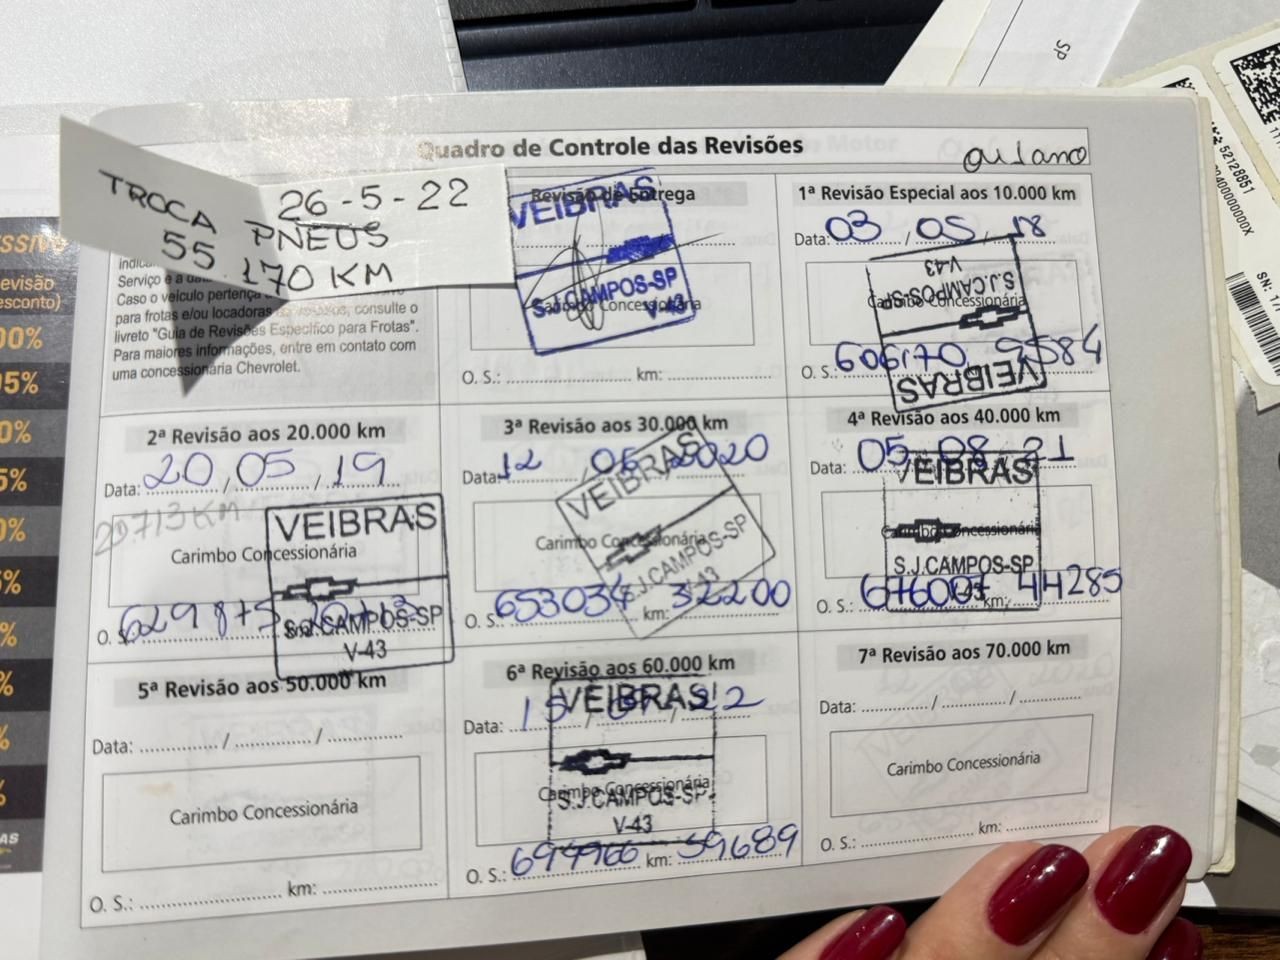 Quadro de Controle das Revisões
ou 1 ano
TROCA PNEUS
26-5-22
55.170 KM
Serviço e a
Caso o veículo pertença
para frotas e/ou locadoras consulte o
livreto "Guia de Revisões Específico para Frotas".
Para maiores informações, entre em contato com
uma concessionária Chevrolet.
Revisão de Entrega
VEIBRAS
S.J.CAMPOS-SP
V-43
Carimbo Concessionária
O. S.: km:
1ª Revisão Especial aos 10.000 km
Data: 03 / 05 / 18
V-43
S.J.CAMPOS-SP
Carimbo Concessionária
VEIBRAS
O. S.: 606170 9584
2ª Revisão aos 20.000 km
Data: 20 / 05 / 19
20713 KM
VEIBRAS
Carimbo Concessionária
S.J.CAMPOS-SP
V-43
O. S.: 629875 20713
3ª Revisão aos 30.000 km
Data: 12 2020
VEIBRAS
Carimbo Concessionária
S.J.CAMPOS-SP
V-43
O. S.: 653034 km: 32200
4ª Revisão aos 40.000 km
Data: 05 08 21
VEIBRAS
Carimbo Concessionária
S.J.CAMPOS-SP
V-43
O. S.: 676007 km: 44285
5ª Revisão aos 50.000 km
Data: / /
Carimbo Concessionária
O. S.: km:
6ª Revisão aos 60.000 km
Data: 15 / / 22
VEIBRAS
Carimbo Concessionária
S.J.CAMPOS-SP
V-43
O. S.: 699966 km: 59689
7ª Revisão aos 70.000 km
Data: / /
Carimbo Concessionária
O. S.: km:
SP
52128851
SN: